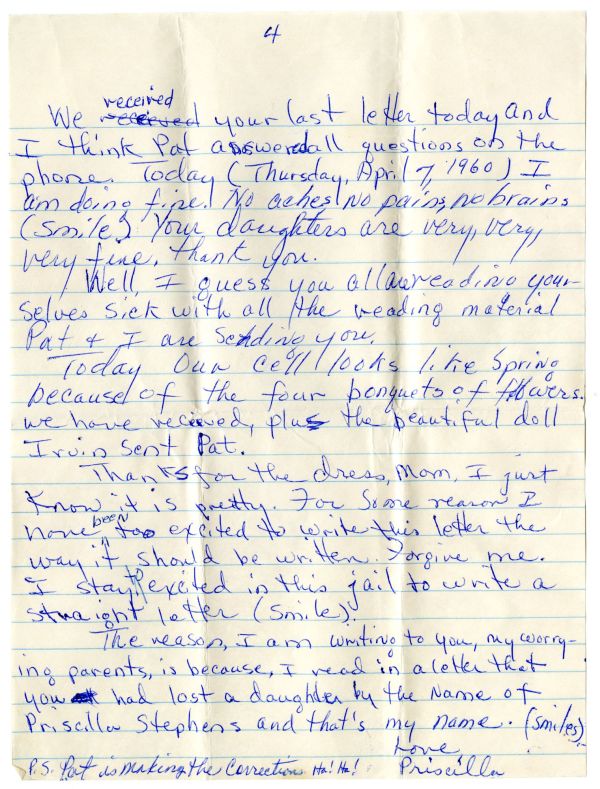 4
We received received your last letter today and
I think Pat answered all questions on the
phone. Today (Thursday, April 7, 1960) I
am doing fine! No aches, No pains, no brains
(smile). Your daughters are very, very,
very fine, thank you.
Well, I guess you all are reading your-
selves sick with all the reading material
Pat & I are sending you.
Today our cell looks like Spring
because of the four bonquets of flowers
we have received, plus the beautiful doll
Irvin sent Pat.
Thanks for the dress, Mom, I just
know it is pretty. For some reason I
have been too excited to write this letter the
way it should be written. Forgive me.
I stay to excited in this jail to write a
straight letter (smile).
The reason, I am writing to you, my worry-
ing parents, is because, I read in a letter that
you had lost a daughter by the Name of
Priscilla Stephens and that's my name. (smiles)
Love
P.S. Pat is making the corrections Ha! Ha! Priscilla